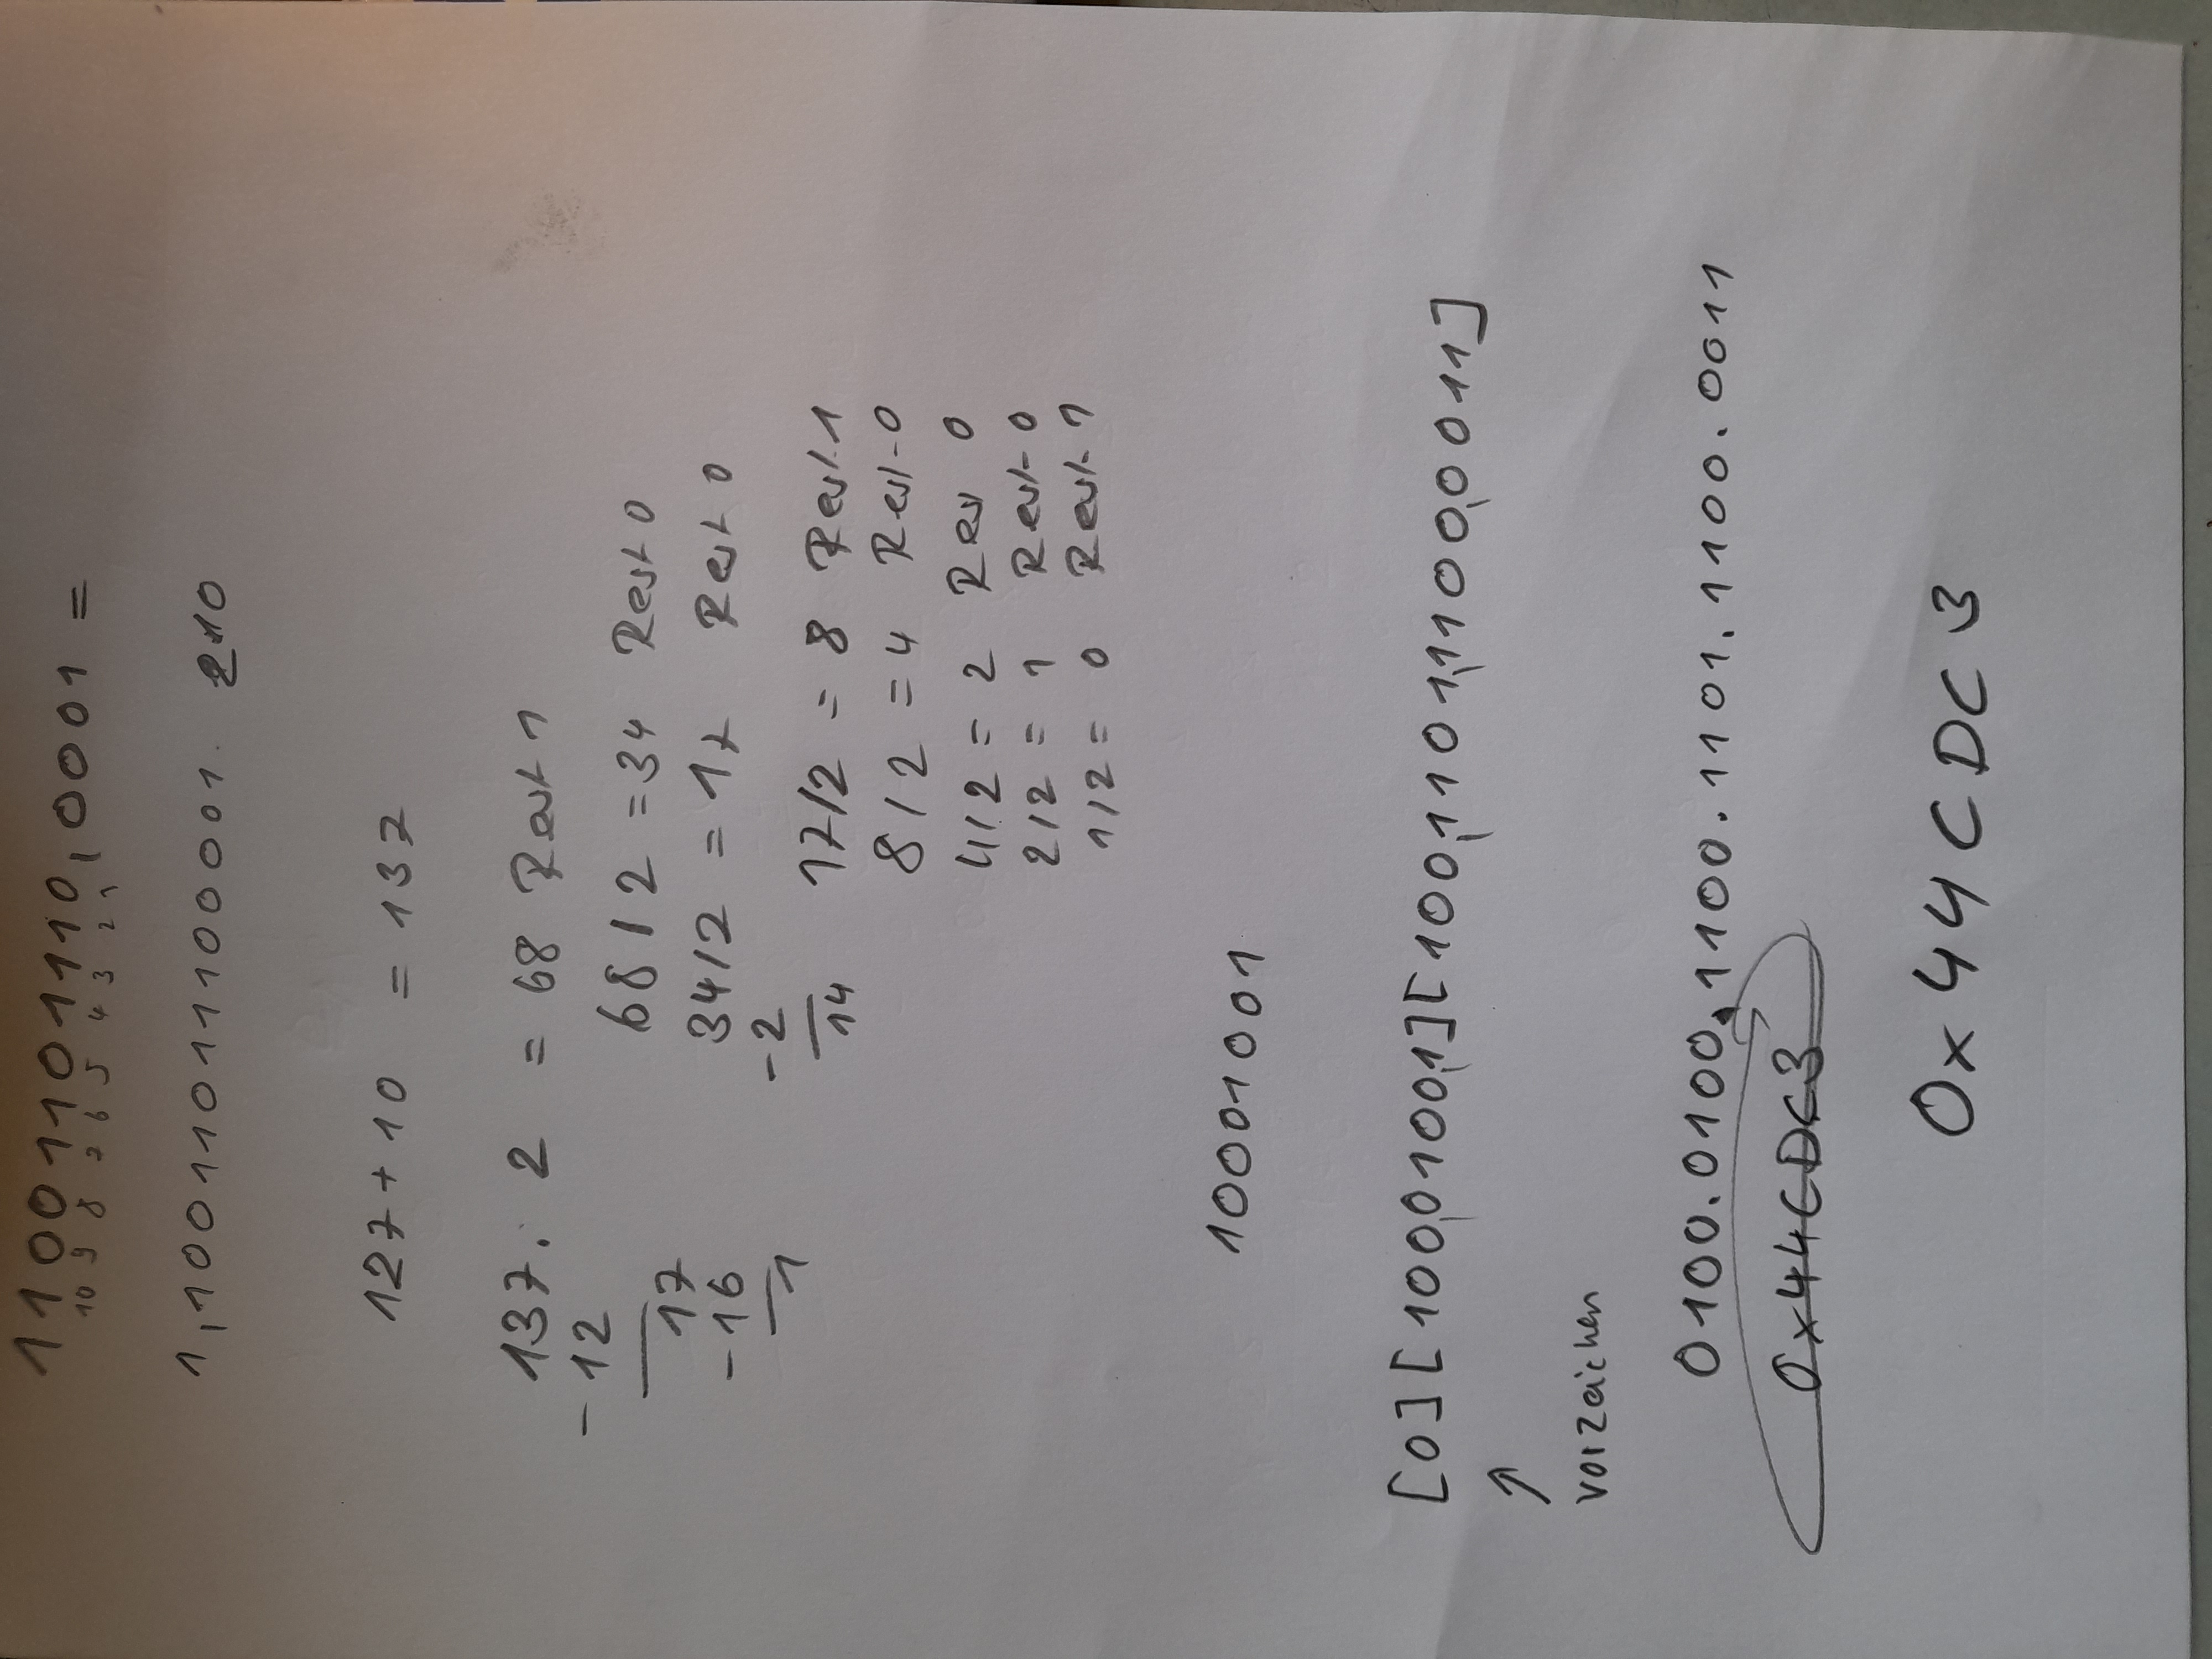 11001101110,0001 =
10 9 8 7 6 5 4 3 2 1
1,10011011100001 . 2 10
127 + 10 = 137
137 : 2 = 68 Rest 1
-12
68 / 2 = 34 Rest 0
17
34/2 = 17 Rest 0
-16
-2
1
14
17/2 = 8 Rest 1
8 / 2 = 4 Rest 0
4/2 = 2 Res 0
2/2 = 1 Rest 0
1/2 = 0 Rest 1
10001001
[0][100,0100,1][100,1101,1100,0011]
↑
Vorzeichen
0100.0100.1100.1101.1100.0011
0x44CDC3
0x44CDC3